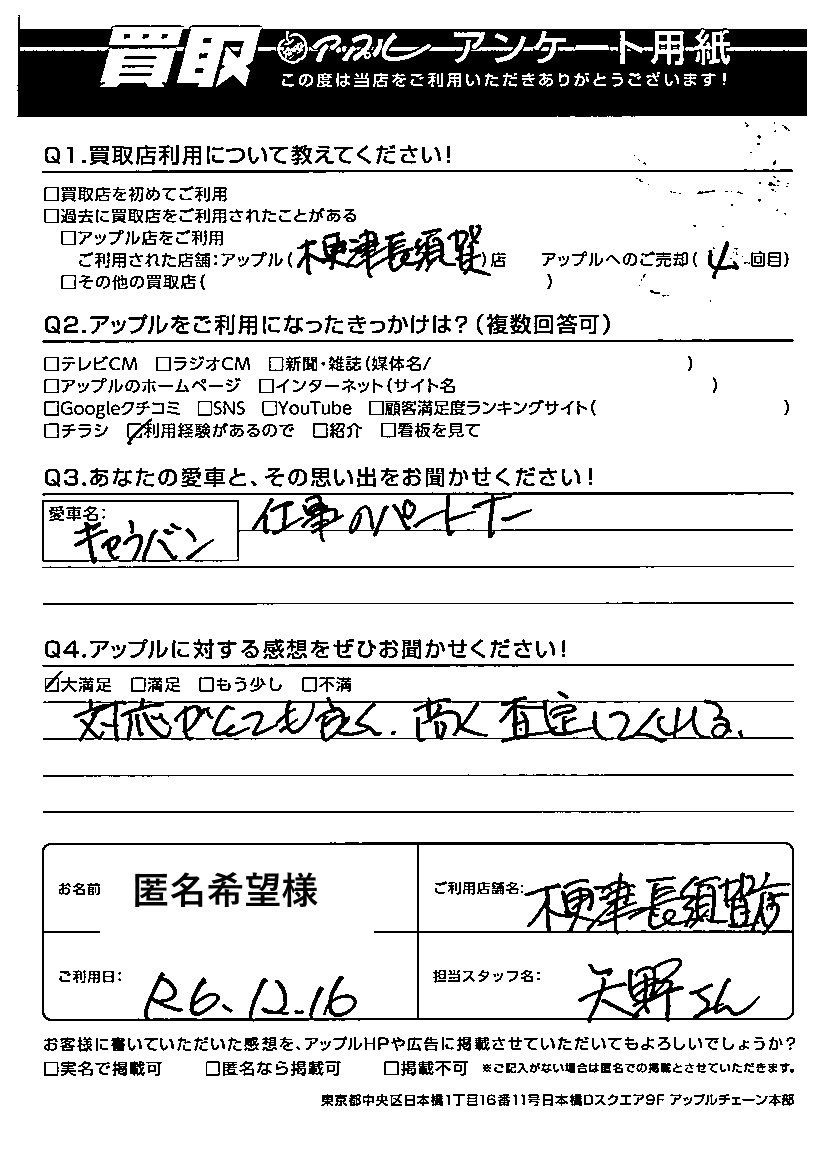 買取 アップル アンケート用紙
この度は当店をご利用いただきありがとうございます!
Q1.買取店利用について教えてください!
□買取店を初めてご利用
□過去に買取店をご利用されたことがある
□アップル店をご利用
ご利用された店舗:アップル(木更津長須賀)店 アップルへのご売却(4回目)
□その他の買取店( )
Q2.アップルをご利用になったきっかけは?(複数回答可)
□テレビCM □ラジオCM □新聞・雑誌(媒体名/ )
□アップルのホームページ □インターネット(サイト名 )
□Googleクチコミ □SNS □YouTube □顧客満足度ランキングサイト( )
□チラシ ☑利用経験があるので □紹介 □看板を見て
Q3.あなたの愛車と、その思い出をお聞かせください!
愛車名: キャラバン 仕事のパートナー
Q4.アップルに対する感想をぜひお聞かせください!
☑大満足 □満足 □もう少し □不満
対応がとても良く、高く査定してくれる、
お名前 匿名希望様 ご利用店舗名: 木更津長須賀店
ご利用日: R6.12.16 担当スタッフ名: 矢野さん
お客様に書いていただいた感想を、アップルHPや広告に掲載させていただいてもよろしいでしょうか?
□実名で掲載可 □匿名なら掲載可 □掲載不可 ※ご記入がない場合は匿名での掲載とさせていただきます。
東京都中央区日本橋1丁目16番11号日本橋Dスクエア9F アップルチェーン本部